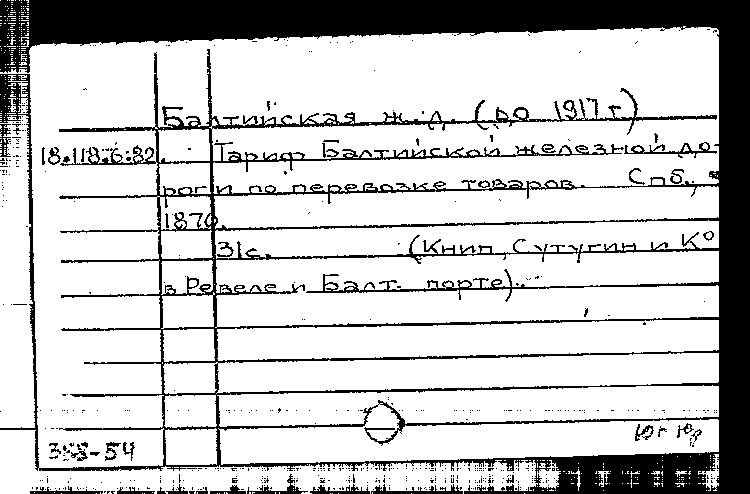 Балтийская ж.д. (до 1917 г.)
18.118.6.82. Тариф Балтийской железной до-
роги по перевозке товаров. Спб.,
1870.
31с. (Книп, Сутугин и К°
в Ревеле и Балт. порте).
358-54